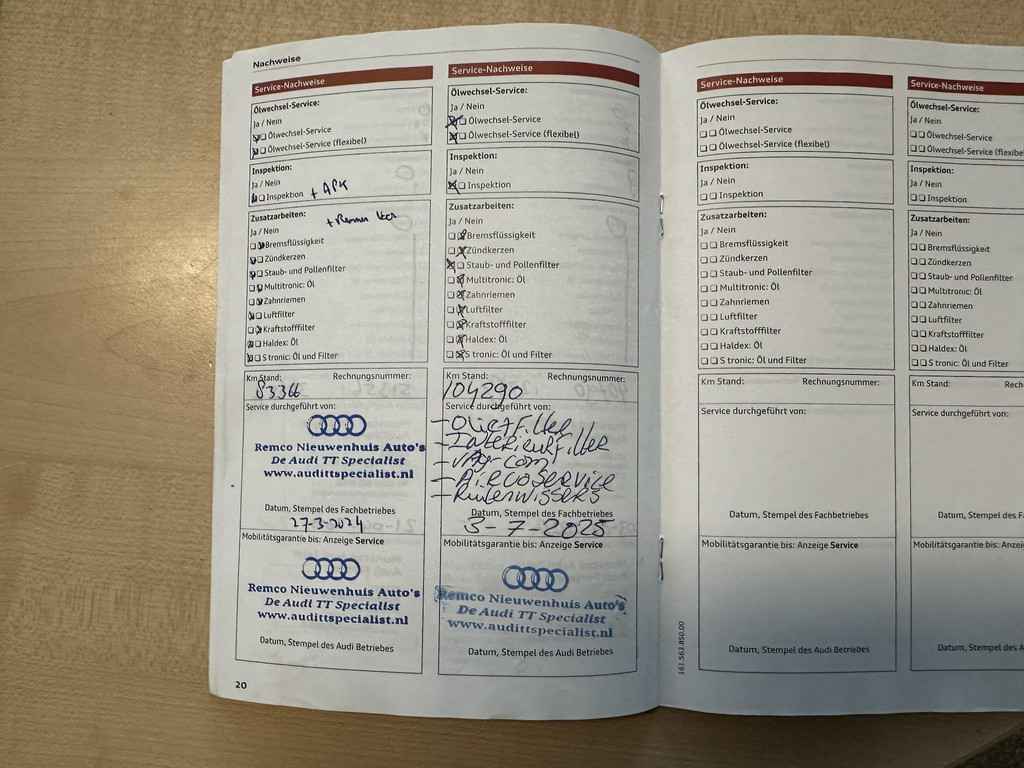 Nachweise
Service-Nachweise
Ölwechsel-Service:
Ja / Nein
Ölwechsel-Service
Ölwechsel-Service (flexibel)
Inspektion:
Ja / Nein
Inspektion + APK
Zusatzarbeiten:
Ja / Nein
Bremsflüssigkeit
Zündkerzen
Staub- und Pollenfilter
Multitronic: Öl
Zahnriemen
Luftfilter
Kraftstofffilter
Haldex: Öl
S tronic: Öl und Filter
Km Stand: Rechnungsnummer:
83366
Service durchgeführt von:
Remco Nieuwenhuis Auto's
De Audi TT Specialist
www.audittspecialist.nl
Datum, Stempel des Fachbetriebes
27-3-2024
Mobilitätsgarantie bis: Anzeige Service
Remco Nieuwenhuis Auto's
De Audi TT Specialist
www.audittspecialist.nl
Datum, Stempel des Audi Betriebes
20
Service-Nachweise
Ölwechsel-Service:
Ja / Nein
Ölwechsel-Service
Ölwechsel-Service (flexibel)
Inspektion:
Ja / Nein
Inspektion
Zusatzarbeiten:
Ja / Nein
Bremsflüssigkeit
Zündkerzen
Staub- und Pollenfilter
Multitronic: Öl
Zahnriemen
Luftfilter
Kraftstofffilter
Haldex: Öl
S tronic: Öl und Filter
Km Stand: Rechnungsnummer:
104290
Service durchgeführt von:
- Interieurfilter
- VAG-com
- Aircoservice
- Ruitenwissers
Datum, Stempel des Fachbetriebes
3-7-2025
Mobilitätsgarantie bis: Anzeige Service
Remco Nieuwenhuis Auto's
De Audi TT Specialist
www.audittspecialist.nl
Datum, Stempel des Audi Betriebes
Service-Nachweise
Ölwechsel-Service:
Ja / Nein
Ölwechsel-Service
Ölwechsel-Service (flexibel)
Inspektion:
Ja / Nein
Inspektion
Zusatzarbeiten:
Ja / Nein
Bremsflüssigkeit
Zündkerzen
Staub- und Pollenfilter
Multitronic: Öl
Zahnriemen
Luftfilter
Kraftstofffilter
Haldex: Öl
S tronic: Öl und Filter
Km Stand: Rechnungsnummer:
Service durchgeführt von:
Datum, Stempel des Fachbetriebes
Mobilitätsgarantie bis: Anzeige Service
Datum, Stempel des Audi Betriebes
161.563.850.00
Service-Nachweise
Ölwechsel-Service:
Ja / Nein
Ölwechsel-Service
Ölwechsel-Service (flexibel
Inspektion:
Ja / Nein
Inspektion
Zusatzarbeiten:
Ja / Nein
Bremsflüssigkeit
Zündkerzen
Staub- und Pollenfilter
Multitronic: Öl
Zahnriemen
Luftfilter
Kraftstofffilter
Haldex: Öl
S tronic: Öl und Filter
Km Stand:
Service durchgeführt von:
Datum, Stempel des
Mobilitätsgarantie bis: Anzeige
Datum, Stempel des